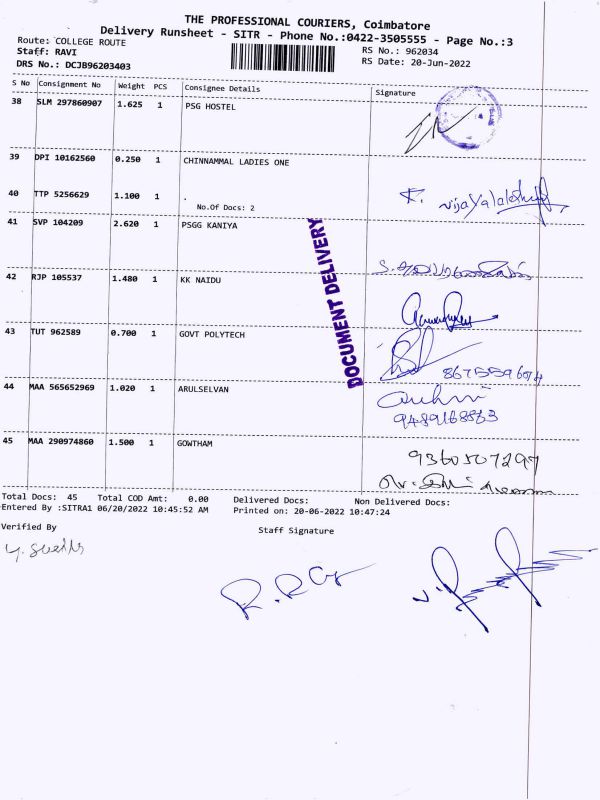 THE PROFESSIONAL COURIERS, Coimbatore
Delivery Runsheet - SITR - Phone No.:0422-3505555 - Page No.:3
Route: COLLEGE ROUTE
Staff: RAVI RS No.: 962034
DRS No.: DCJB96203403 RS Date: 20-Jun-2022
S No Consignment No Weight PCS Consignee Details Signature
38 SLM 297860907 1.625 1 PSG HOSTEL
39 DPI 10162560 0.250 1 CHINNAMMAL LADIES ONE
40 TTP 5256629 1.100 1 .
No.Of Docs: 2
41 SVP 104209 2.620 1 PSGG KANIYA
42 RJP 105537 1.480 1 KK NAIDU
43 TUT 962589 0.700 1 GOVT POLYTECH
8675559674
44 MAA 565652969 1.020 1 ARULSELVAN
9489168563
45 MAA 290974860 1.500 1 GOWTHAM
9360507297
DOCUMENT DELIVERY
Total Docs: 45 Total COD Amt: 0.00 Delivered Docs: Non Delivered Docs:
Entered By :SITRA1 06/20/2022 10:45:52 AM Printed on: 20-06-2022 10:47:24
Verified By Staff Signature